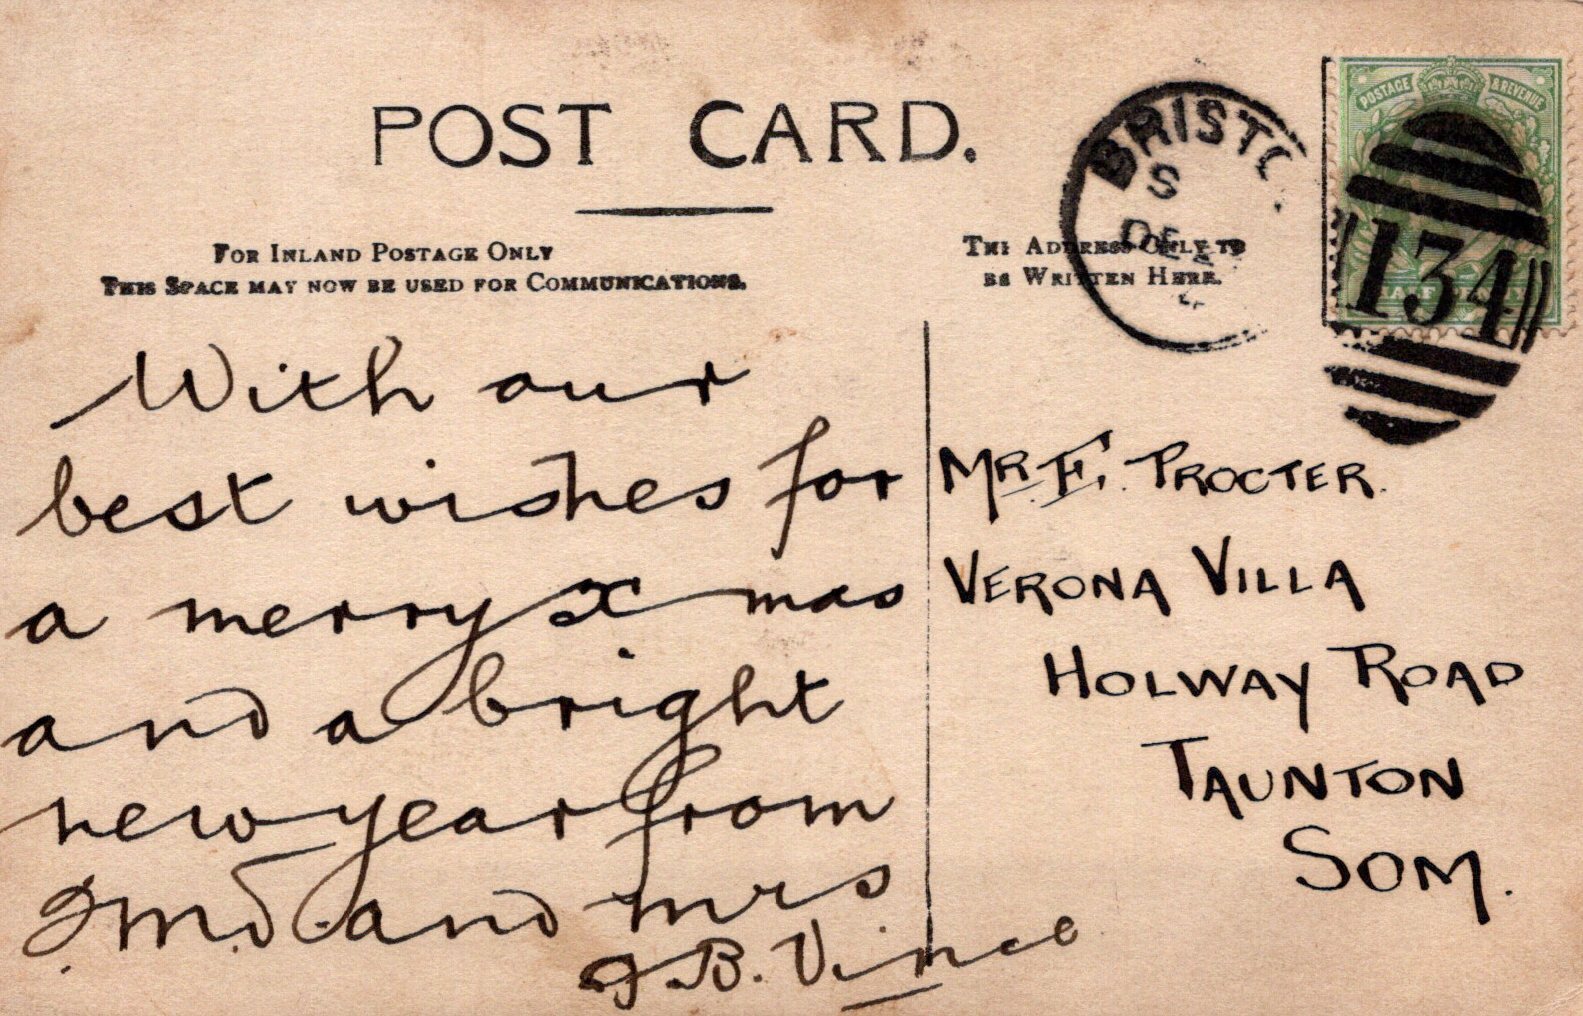 POST CARD.
FOR INLAND POSTAGE ONLY
THIS SPACE MAY NOW BE USED FOR COMMUNICATIONS.
THE ADDRESS ONLY TO
BE WRITTEN HERE.
BRISTO
S
DE
POSTAGE & REVENUE
134
With our
best wishes for
a merry x mas
and a bright
new year from
and mrs
J.B. Vince
MR. F. PROCTER.
VERONA VILLA
HOLWAY ROAD
TAUNTON
SOM.